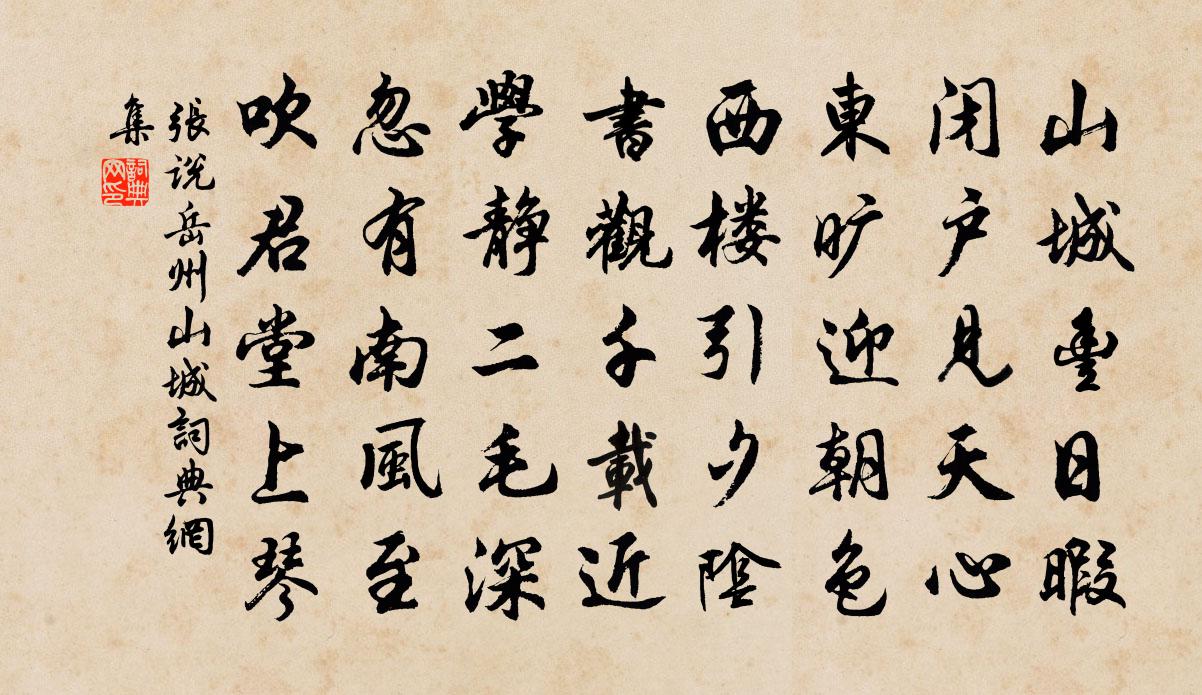 山城豊日暇
闭户見天心
東旷迎朝色
西楼引夕陰
書觀千載近
學静二毛深
忽有南風至
吹君堂上琴
張説岳州山城詞典網
集
詞典
网印